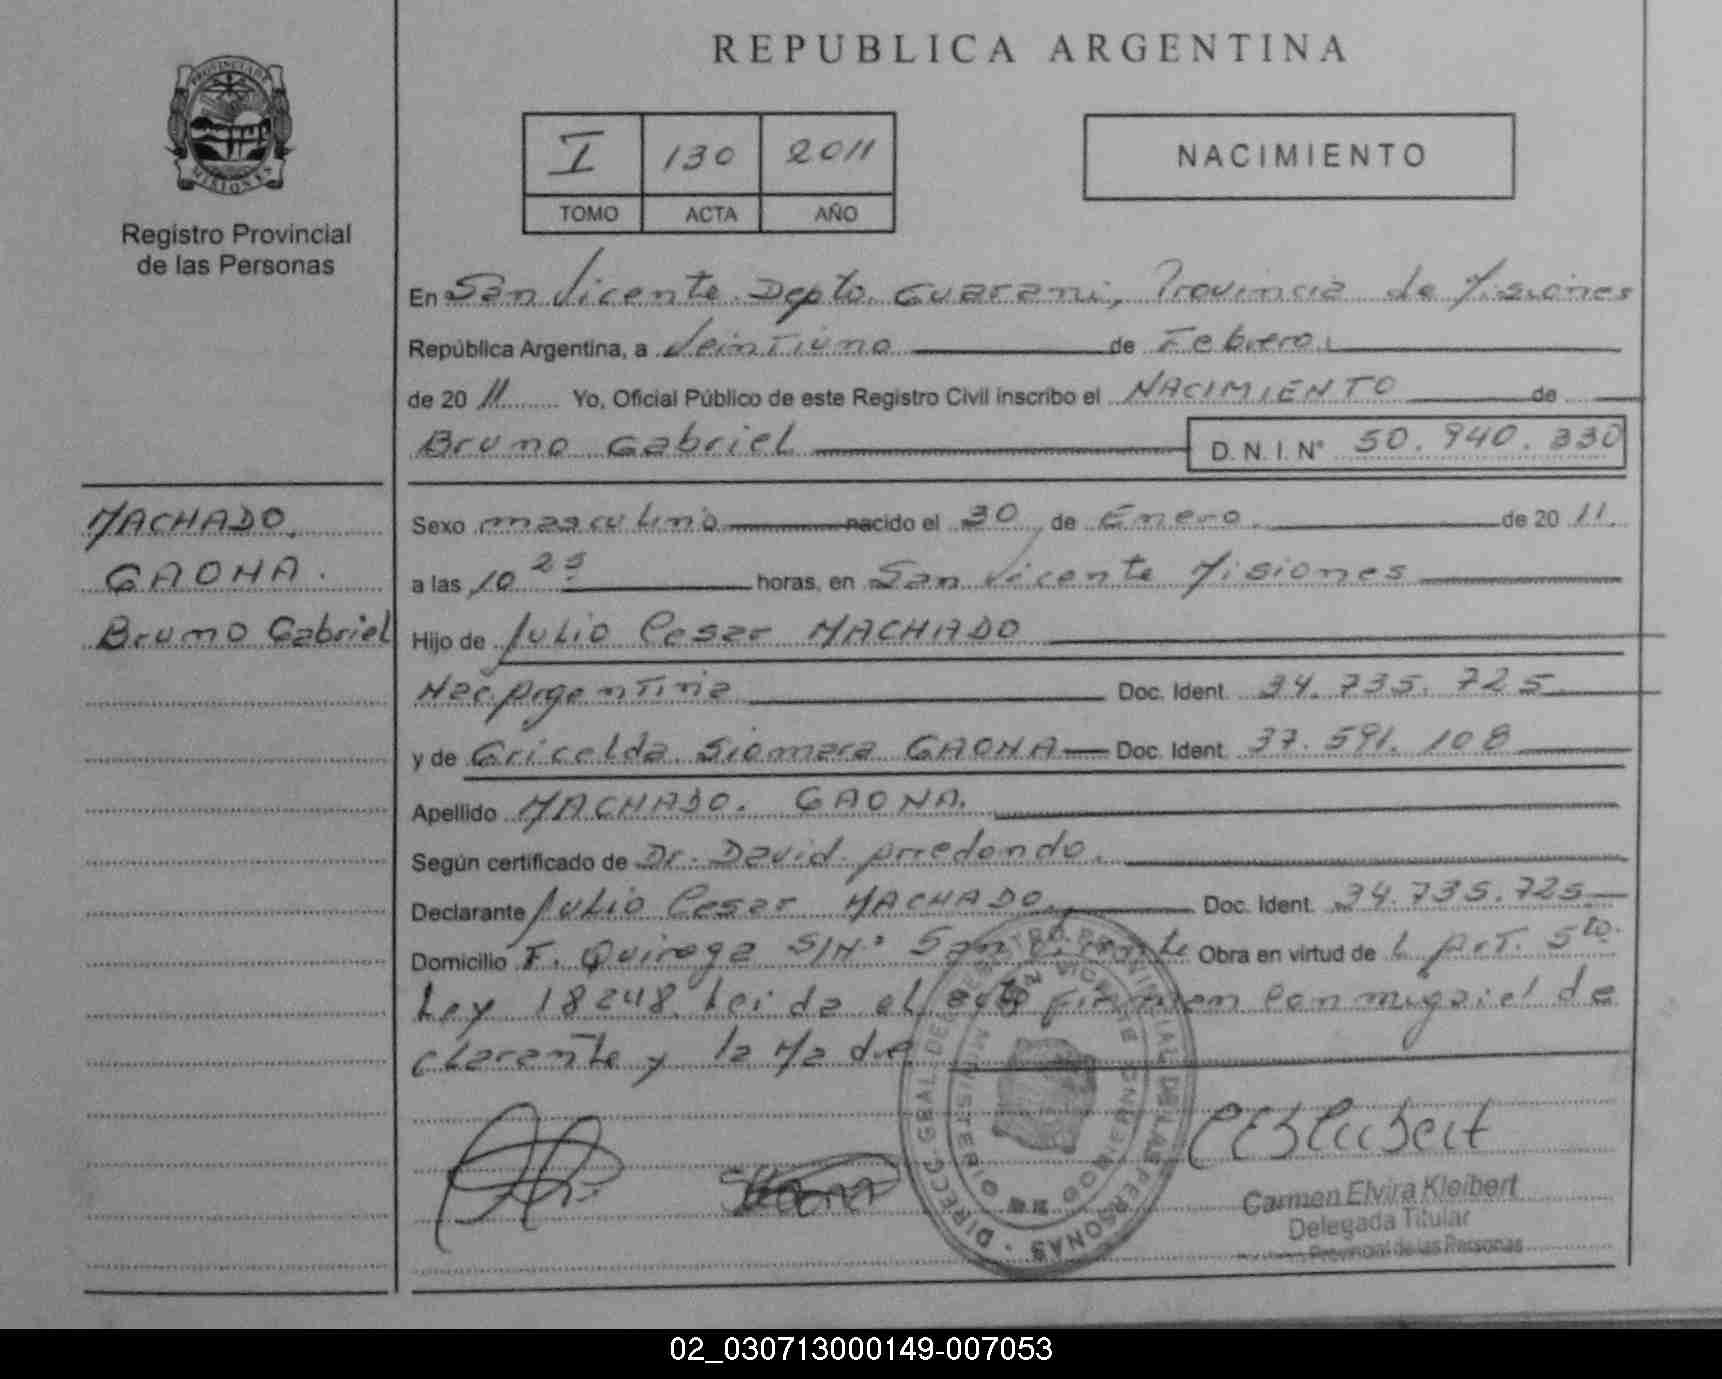 REPUBLICA ARGENTINA
PROVINCIA DE
MISIONES
Registro Provincial
de las Personas
I 130 2011
TOMO ACTA AÑO
NACIMIENTO
En San Vicente Depto. Guarani, Provincia de Misiones
República Argentina, a Veintiuno de Febrero
de 2011 Yo, Oficial Público de este Registro Civil inscribo el NACIMIENTO de
Bruno Gabriel D.N.I. N° 50.940.330
MACHADO
GAONA.
Bruno Gabriel
Sexo masculino nacido el 30 de Enero de 2011.
a las 10 25 horas, en San Vicente Misiones
Hijo de Julio Cesar MACHADO
Nac. Argentina Doc. Ident. 34.735.725
y de Gricelda Siomara GAONA Doc. Ident. 37.591.108
Apellido MACHADO. GAONA.
Según certificado de Dr. David Arredondo.
Declarante Julio Cesar MACHADO Doc. Ident. 34.735.725
Domicilio F. Quiroga S/N° San Vicente Obra en virtud de L Art. 5to.
Ley 18248. Leida el acta firman conmigo: el de
clarante y la Madre
DIRECC. GRAL. DEL REGISTRO PROVINCIAL DE LAS PERSONAS
MINISTERIO DE
Carmen Elvira Kleibert
Delegada Titular
Provincial de las Personas
02_030713000149-007053